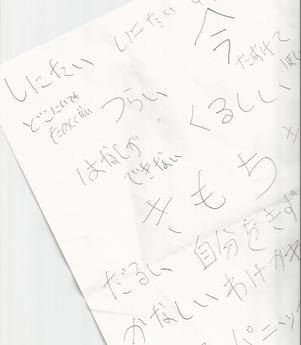 しにたい
しにたい
今
たすけて
ほし
どこにいても
たのしくない
つらい
くるしい
はなしが
できない
きもち
だるい
自分をきず
かなしい
わけが
パニッ